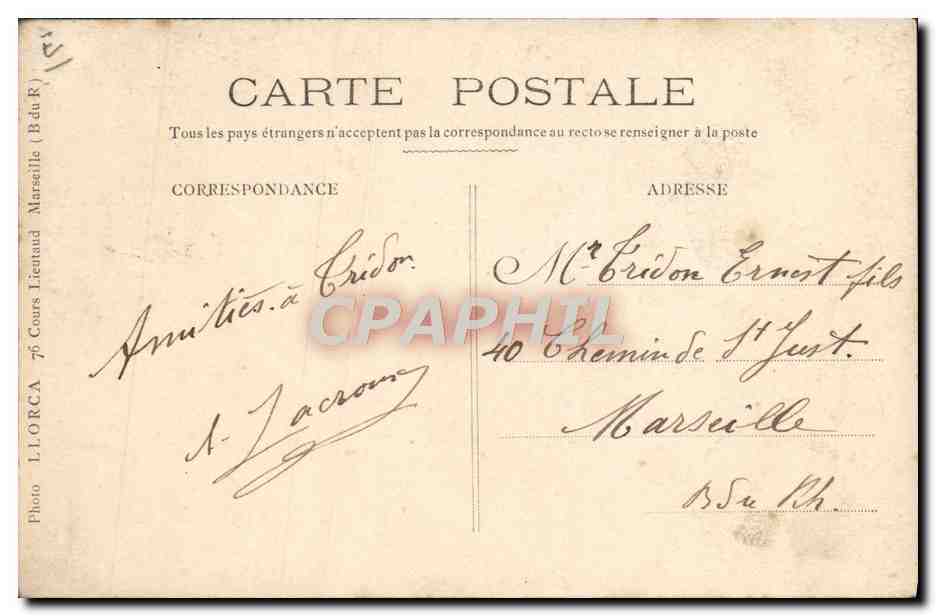 CARTE POSTALE
Tous les pays étrangers n'acceptent pas la correspondance au recto se renseigner à la poste
CORRESPONDANCE
Amitiés à Tridon.
A. Lacroux
ADRESSE
Mr Tridon Ernest fils
40 Chemin de St Just.
Marseille
B du Rh.
Photo LLORCA 76 Cours Lieutaud Marseille (B du R)
CPAPHIL